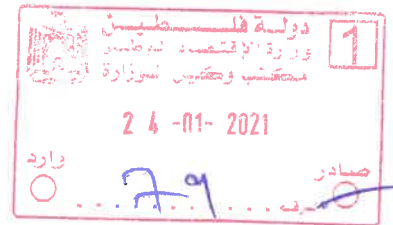 دولة فلسطين
1
وزارة الإقتصاد الوطني
مكتب وكيل الوزارة
2 4 -01- 2021
صادر وارد
79